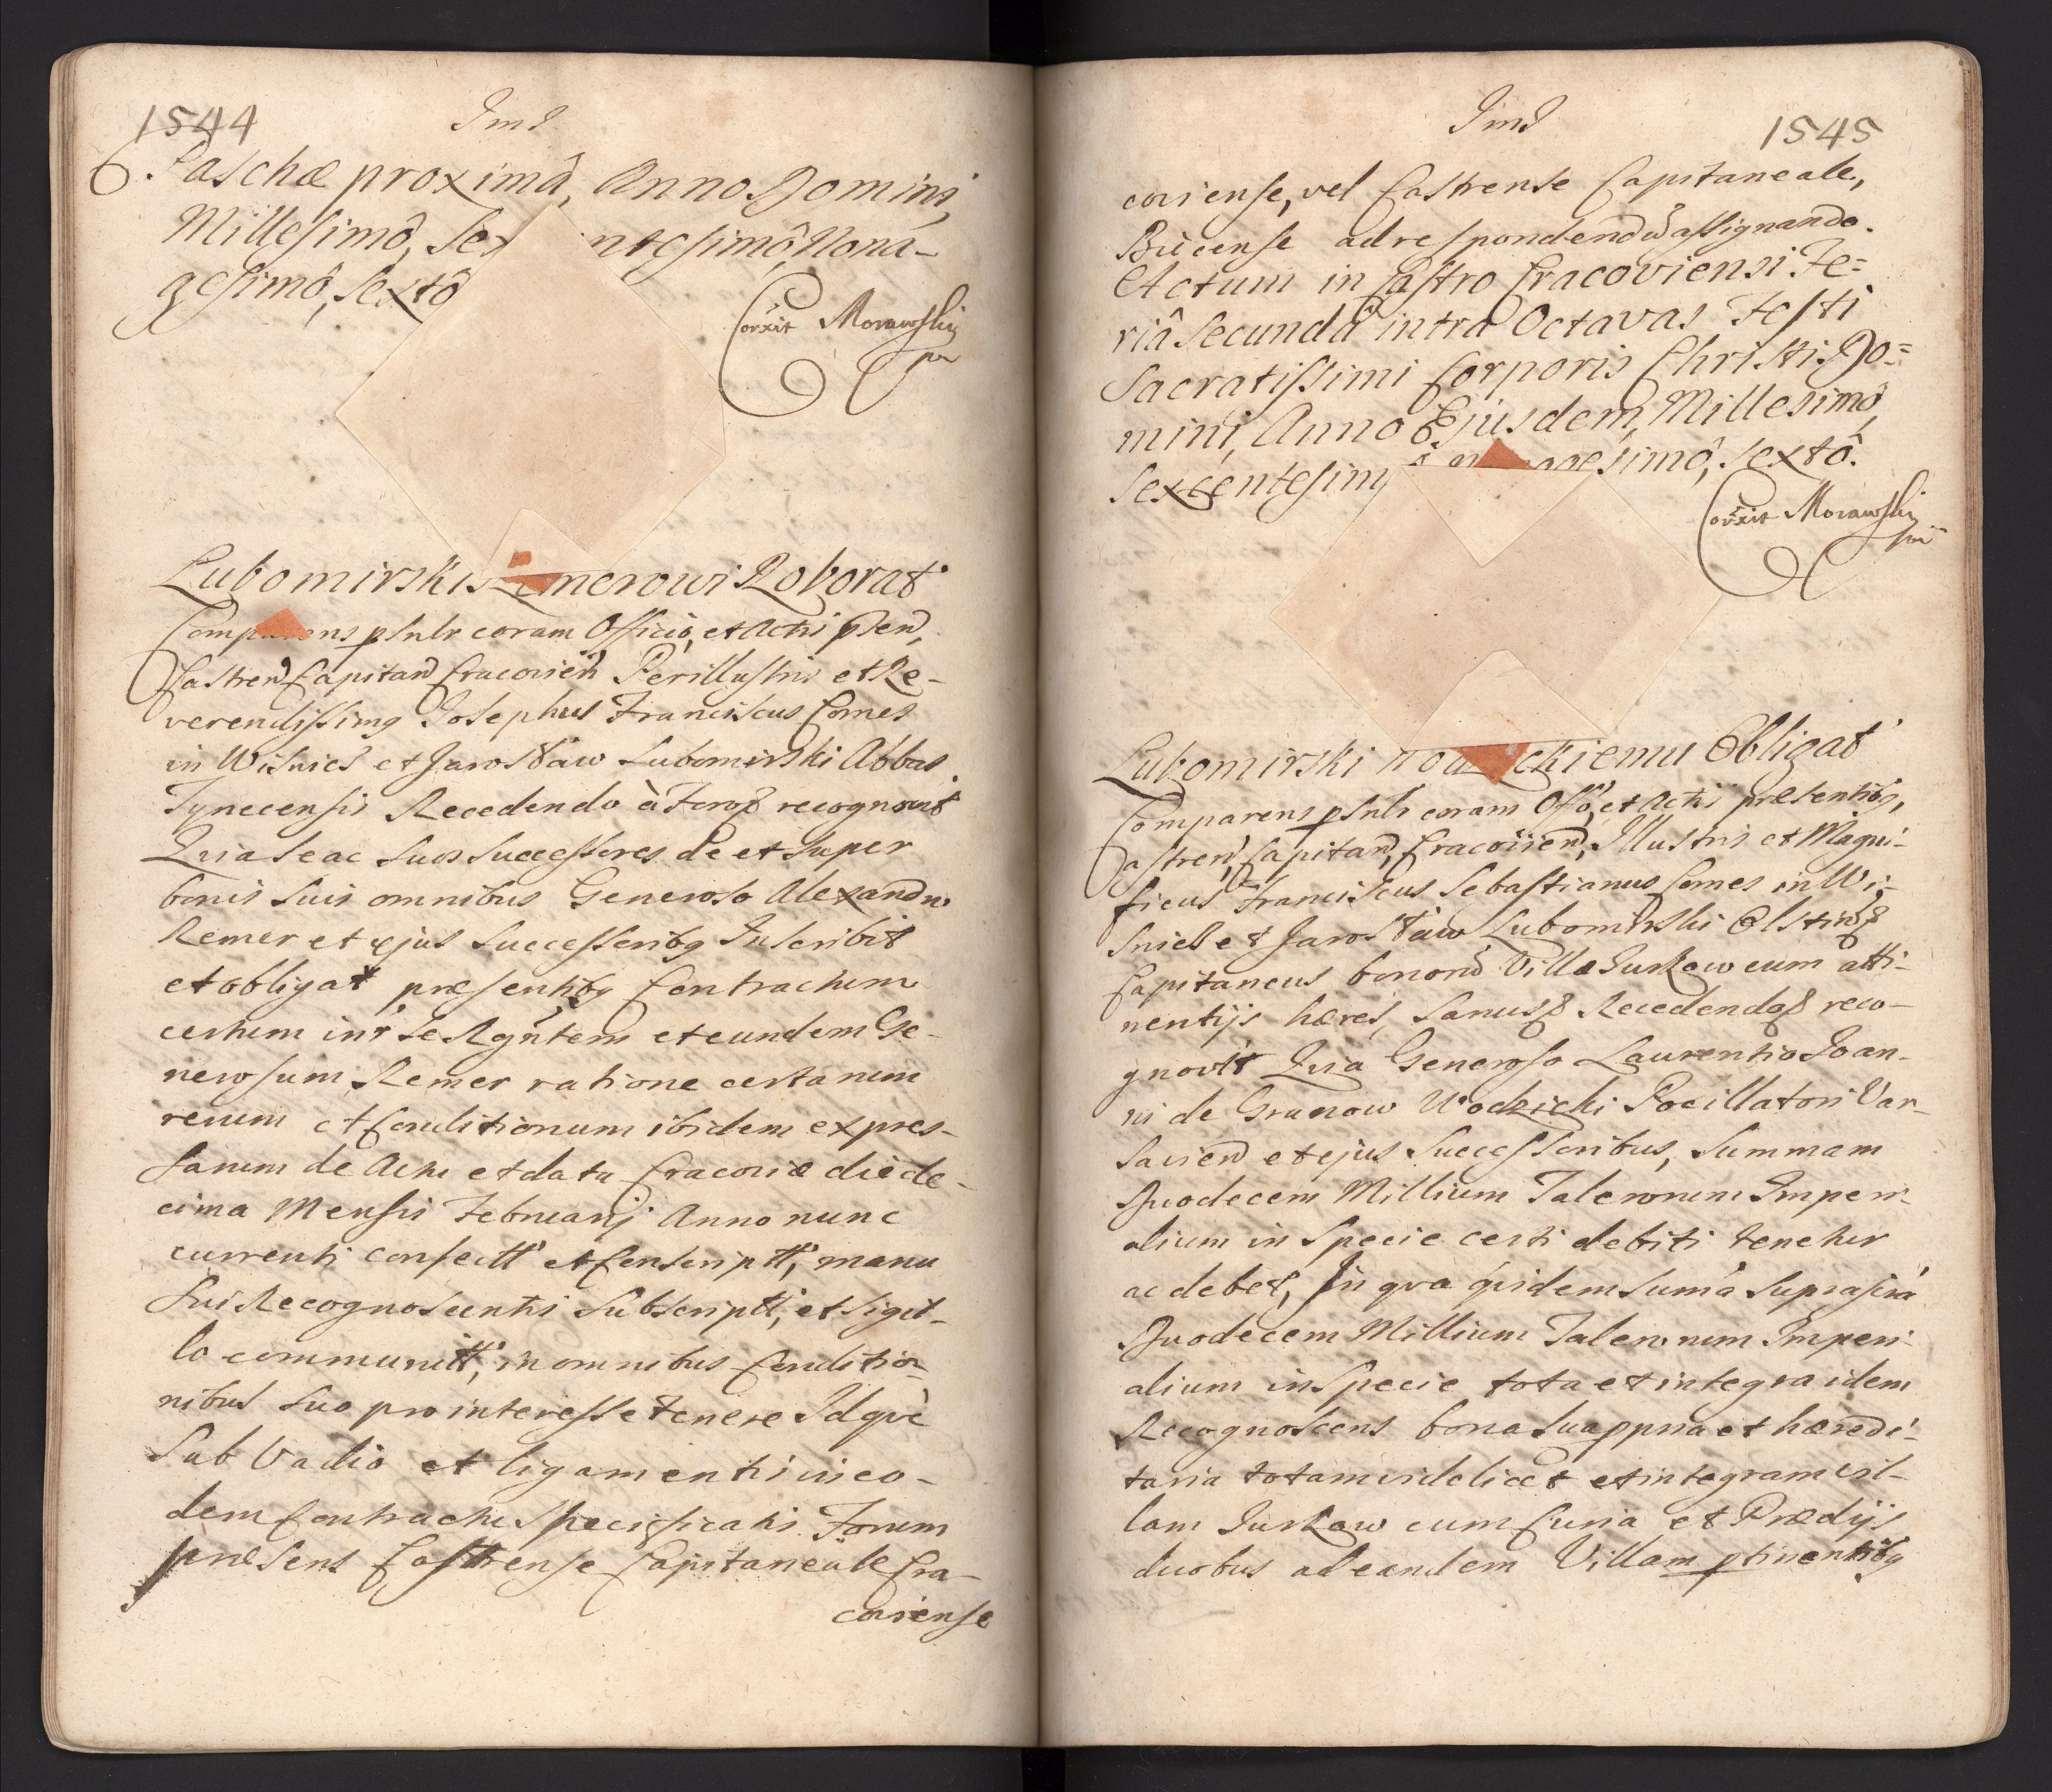 1544
Ind
Paschæ proximâ, Anno Domini,
Millesimô, Sex ntesimô Nona-
gesimô, Sextô
Corxit Morawski
mp
Lubomirski Remerowi Roborat
Comparens psnlr coram Officiô, et Actis psen,
Castren Capitan Cracovien Perillustris et Re-
verendissimq Josephus Franciscus Comes
in Wisnicz et Jarosław Lubomirski Abbas
Tynecensis Recedendo à Foroq recognovit
Quia se ac suos successores de et super
bonis suis omnibus Generoso Alexandro
Remer et ejus successoribq Inscribit
et obligat præsentibq Contractum
certum intr se Rgntem et eundem Ge-
nerosum Remer ratione certarum
rerum et Conditionum ibidem expres-
sarum de Actu et data Cracoviæ die de-
cima Mensis Februarij Anno nunc
currenti confectt et Conscriptt, manu
sui Recognoscentis subscriptt, et sigil-
lo communitt, in omnibus Conditio-
nibus suo pro interesse tenere Idqve
sub Vadio et ligamentis in eo-
dem Contractu specificatis Forum
præsens Castrense Capitaneale Cra-
coviense
Ind
1545
coviense, vel Castrense Capitaneale,
Biecense ad respondend assignando.
Actum in Castro Cracoviensi Fe=
riâ Secundâ intra Octavas Festi
Sacratissimi Corporis Christi Do=
mini, Anno Ejusdem, Millesimô,
Sexcentesim gesimô, Sextô.
Corxit Morawski
mp
Lubomirski Wodzickiemu Obligat
Comparens psnlr coram Offô, et Actis præsentibq,
Castren, Capitan, Cracovien, Illustris et Magni-
ficus Franciscus Sebastianus Comes in Wi-
snicz et Jarosław Lubomirski Olstinq
Capitaneus bonorum Villæ Jurkow cum atti-
nentijs hæres, Sanusq Recedendoq reco-
gnovit Quia Generoso Laurentio Joan-
ni de Granow Wodzicki Pocillatori Var-
savien et ejus successoribus, Summam
Duodecem Millium Taleronum Imperi-
alium in Specie certi debiti tenetur
ac debet, In qva qvidem suma suprascra
Duodecem Millium Taleronum Imperi-
alium in Specie tota et integra idem
Recognoscens bona sua ppria et hæredi-
taria totam videlicet et integram vil-
lam Jurkow cum Curia et Prædijs
duobus ad eandem Villam ptinentibq